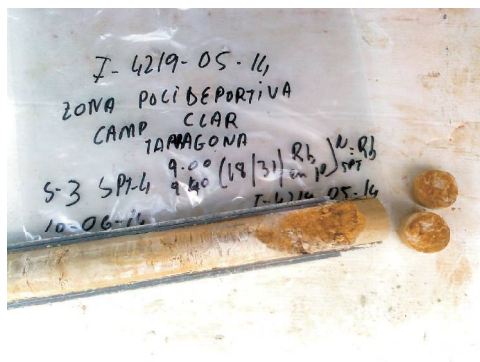 I-4219-05-14
ZONA POLIDEPORTIVA
CAMP CLAR
TARRAGONA
S-3 SPT-4 9.00 9.40 (18/31/ Rb en 10) N SPT = Rb
10-06-14 I-4219-05-14